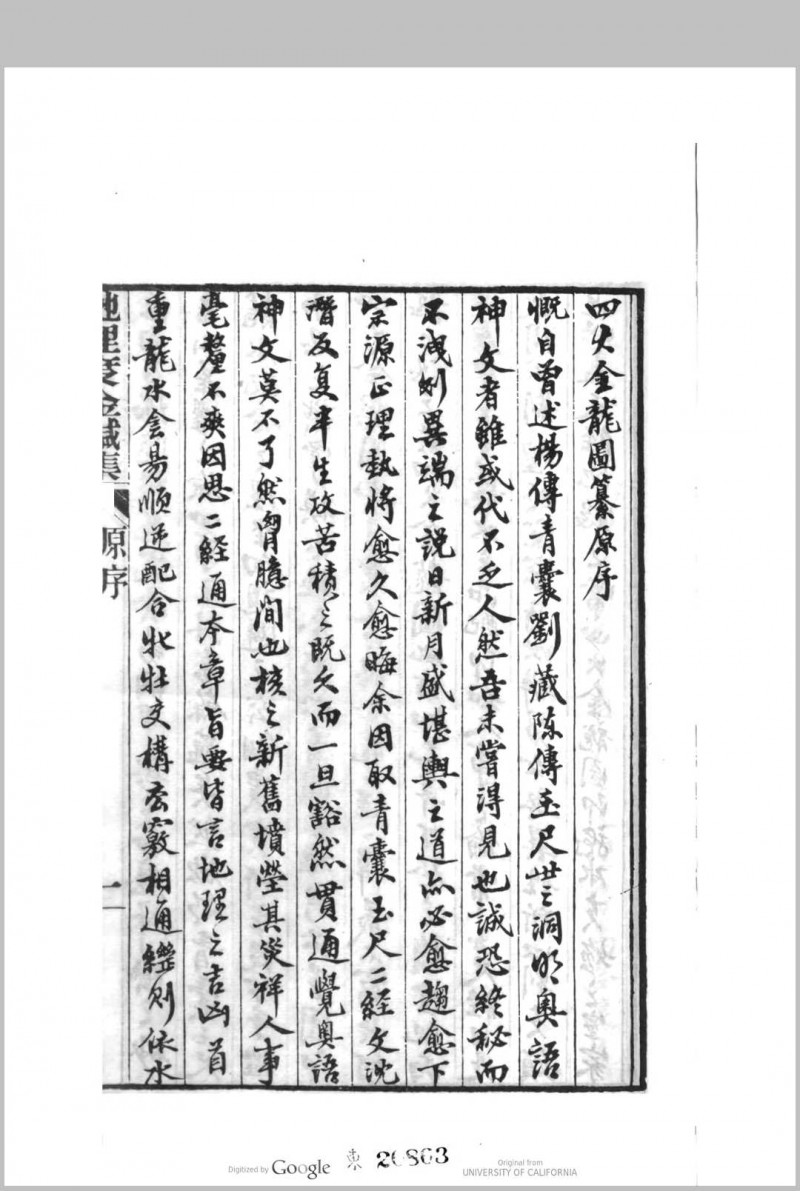 四大金龍圖纂原序
慨自曾述楊傳青囊劉藏陳傳玉尺世之洞明奧語
神文者雖或代不乏人然吾未嘗得見也誠恐終秘而
不洩則異端之說日新月盛堪輿之道亦必愈趨愈下
宗源正理執將愈久愈晦余因取青囊玉尺二經文沈
潛反复半生攻苦積之既久而一旦豁然貫通覺奧語
神文莫不了然胷臆間也核之新舊墳塋其災祥人事
毫釐不爽因思二經通本章旨要皆言地理之吉凶首
重龍水会易順逆配合牝牡交構玄竅相通繼則依水
地理
金鍼集
原序
一
Digitized by Google
東 26863
Original from
UNIVERSITY OF CALIFORNIA